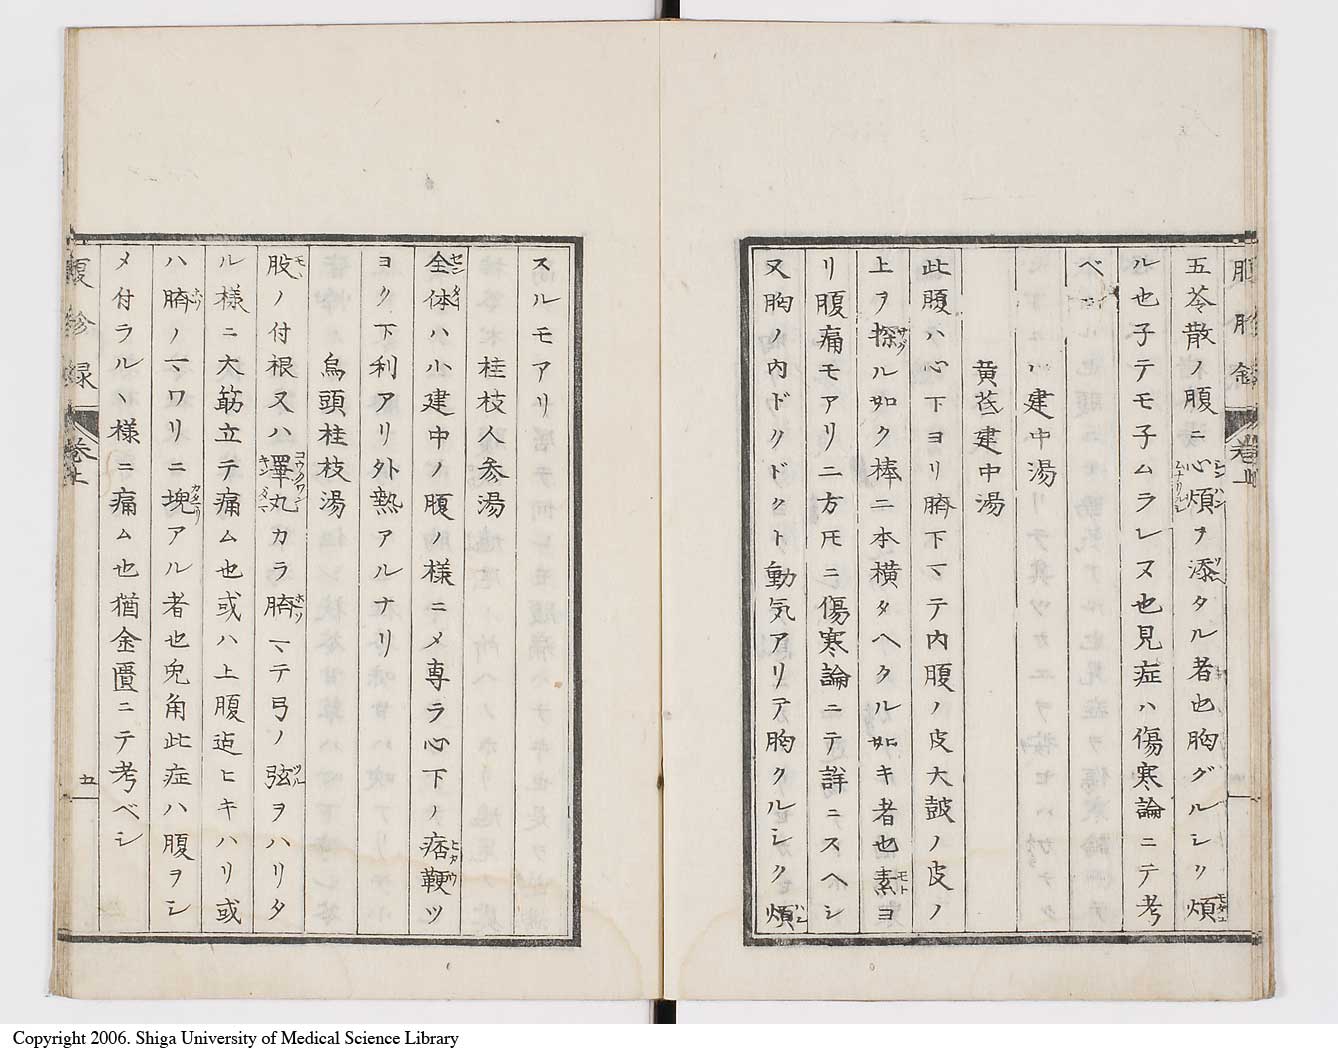 五苓散ノ腹ニ心煩ヲ添タル者也胸グルシク煩
ル也子テモ子ムラレヌ也見症ハ傷寒論ニテ考
ベシ
小建中湯
黄芪建中湯
此腹ハ心下ヨリ臍下マテ内腹ノ皮大皷ノ皮ノ
上ヲ探ル如ク棒二本横タヘタル如キ者也素ヨ
リ腹痛モアリ二方𪜈ニ傷寒論ニテ詳ニスヘシ
又胸ノ内ドクドクト動気アリテ胸クルシク煩
スルモアリ
桂枝人参湯
全体ハ小建中ノ腹ノ様ニメ専ラ心下ノ痞鞕ツ
ヨク下利アリ外熱アルナリ
烏頭桂枝湯
股ノ付根又ハ睾丸カラ臍マテ弓ノ弦ヲハリタ
ル様ニ大筋立テ痛ム也或ハ上腹迠ヒキハリ或
ハ臍ノマワリニ塊アル者也兎角此症ハ腹ヲシ
メ付ラルヽ様ニ痛ム也猶金匱ニテ考ベシ
五
Copyright 2006. Shiga University of Medical Science Library